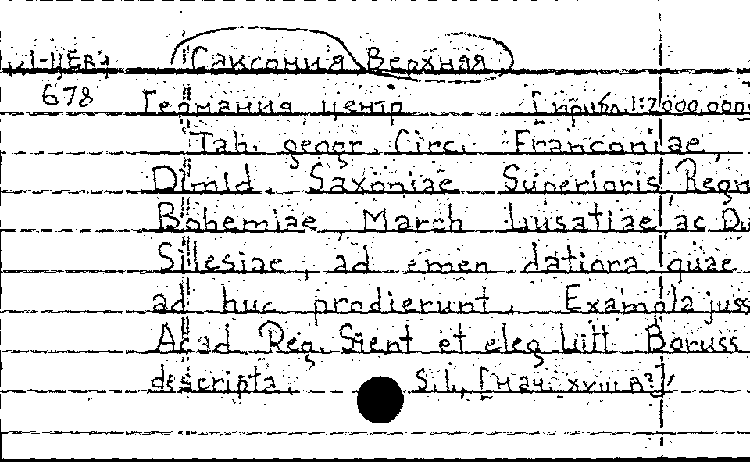 Саксония Верхняя
678 Германия центр [прибл. 1:2000.000
Tab. geogr. Circ. Franconiae,
Dimid. Saxoniae Superioris Regn
Bohemiae, March Lusatiae ac Du
Silesiae, ad emen datiora quae
ad huc prodierunt. Exampla juss
Acad Reg. Sient et eleg Litt Boruss
descripta. S.l., [нач. XVIII в?],